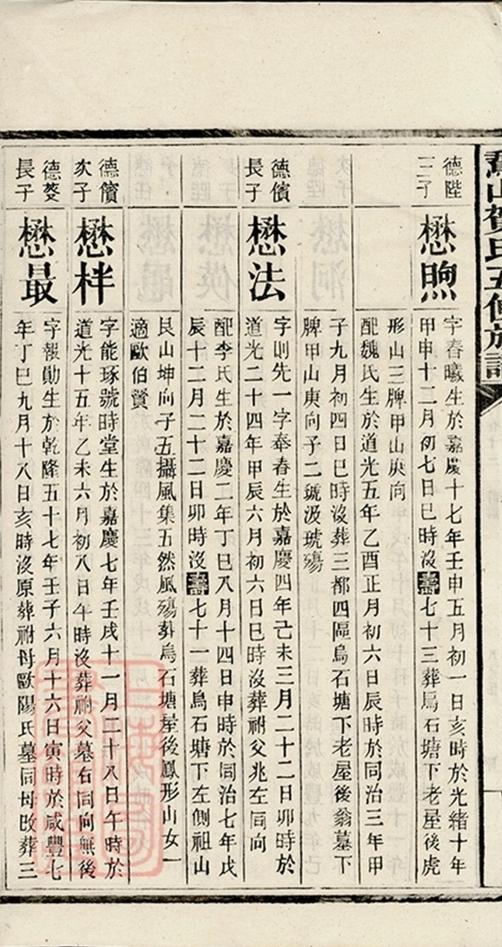 德陛
三子
懋煦
字春曦生於嘉慶十七年壬申五月初一日亥時於光緒十年
甲申十二月初七日巳時沒壽七十三葬烏石塘下老屋後虎
形山三脾甲山庚向
配魏氏生於道光五年乙酉正月初六日辰時於同治三年甲
子九月初四日巳時沒葬三都四區烏石塘下老屋後翁墓下
脾甲山庚向子二琥汲琥殤
德儐
長子
懋法
字則先一字奉春生於嘉慶四年己未三月二十二日卯時於
道光二十四年甲辰六月初六日巳時沒葬祔父兆左同向
配李氏生於嘉慶二年丁巳八月十四日申時於同治七年戊
辰十二月二十二日卯時沒壽七十一葬烏石塘下左側祖山
艮山坤向子五攝風集五然風殤葬烏石塘屋後鳳形山女一
適歐伯贊
德儐
次子
懋柈
字能琢號時堂生於嘉慶七年壬戌十一月二十八日午時於
道光十五年乙未六月初八日午時沒葬祔父墓右同向無後
德蔆
長子
懋最
字報勛生於乾隆五十七年壬子六月十六日寅時於咸豐七
年丁巳九月十八日亥時沒原葬祔母歐陽氏墓同母改葬三